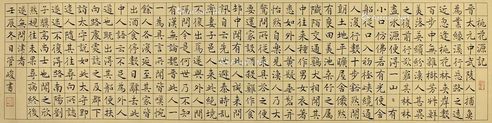 桃花源記
晉太元中武陵人捕魚
為業緣溪行忘路之遠
近忽逢桃花林夾岸數
百步中無雜樹芳草鮮
美落英繽紛漁人甚異
之復前行欲窮其林林
盡水源便得一山山有
小口仿佛若有光便舍
船從口入初極狹纔通
人復行數十步豁然開
朗土地平曠屋舍儼然
有良田美池桑竹之屬
阡陌交通雞犬相聞其
中往來種作男女衣著
悉如外人黃髮垂髫並
怡然自樂見漁人乃大
驚問所從來具答之便
要還家設酒殺雞作食
村中聞有此人咸來問
訊自云先世避秦時亂
率妻子邑人來此絕境
不復出焉遂與外人間
隔問今是何世乃不知
有漢無論魏晉此人一
一為具言所聞皆嘆惋
餘人各復延至其家皆
出酒食停數日辭去此
中人語云不足為外人
道也既出得其船便扶
向路處處誌之及郡下
詣太守說如此太守即
遣人隨其往尋向所誌
遂迷不復得路南陽劉
子驥高尚士也聞之欣
然規往未果尋病終後
遂無問津者
壬辰冬日 峻書